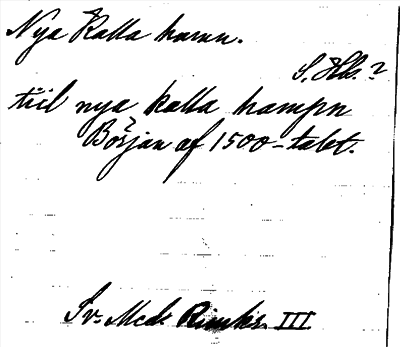 Nya Kalla hamn.
S. Hls. ?
till nya kalla hampn
Början af 1500-talet.
Sv. Med. Rimkr. III